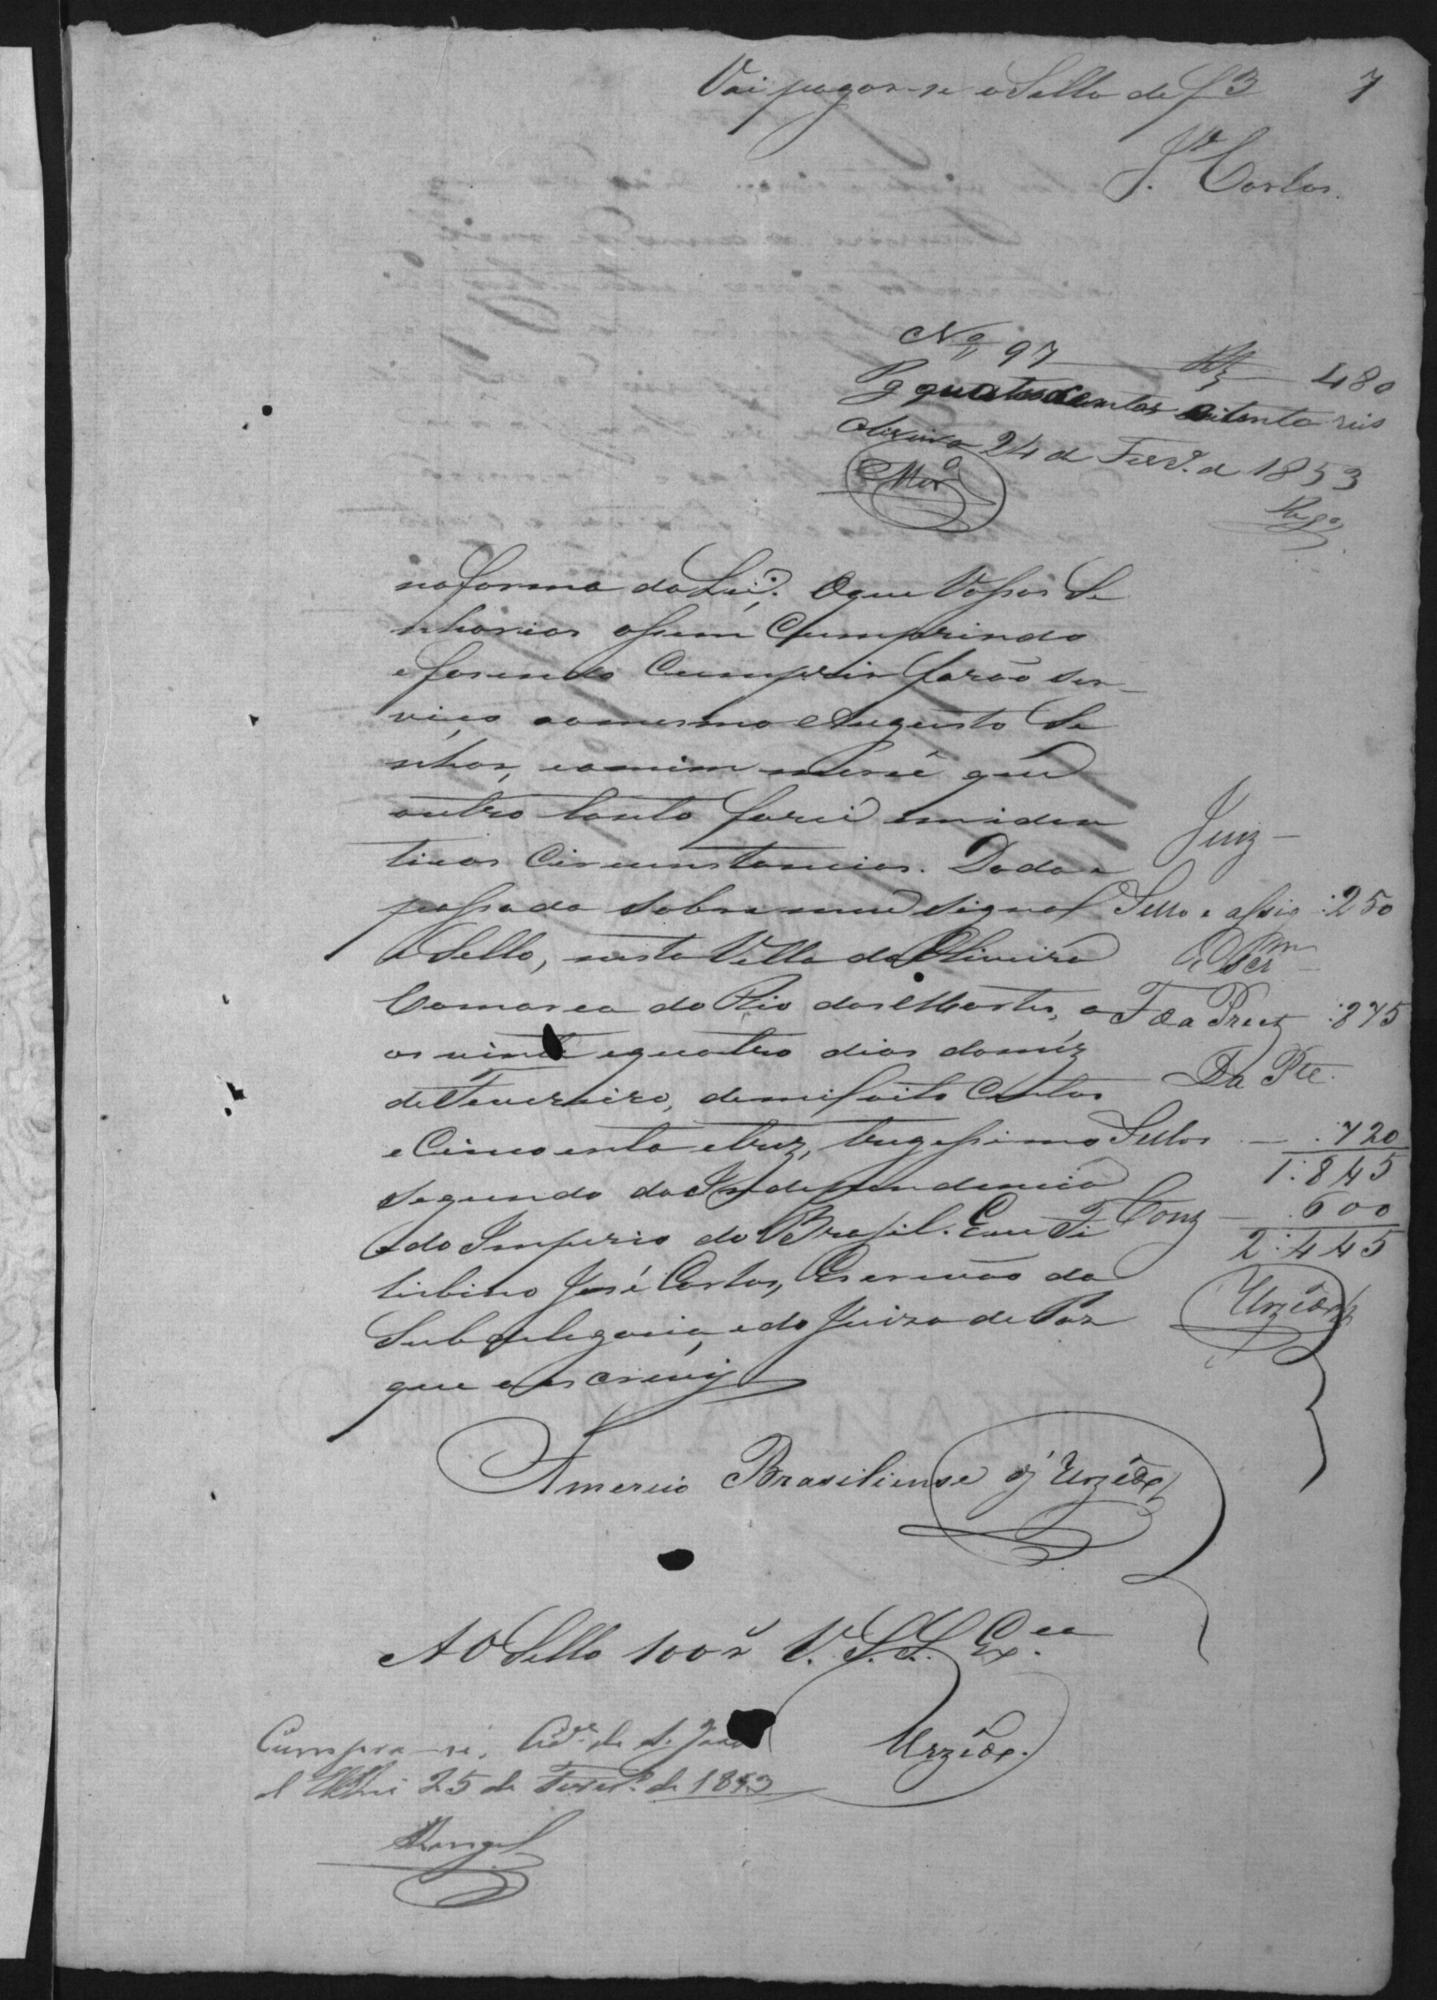 Vai pagar-se o Sello de f 3 7
J.e Carlos
Nº 97 Rs 480
Pg quatrocentos oitenta reis
Oliveira 24 de Fevrº. d 1853
Mor.ª
Rego
na forma da Lei. O que Vossas Se
nhorias assim Cumprindo
e fasendo Cumprir farão ser-
viço ao mesmo Augusto Se
nhor, e a mim mercê que
outro tanto farei em iden
ticas Circunstancias. Dada e
passada sobre meu signal
O Sello, nesta Villa da Oliveira
Comarca do Rio das Mortes, a
os vinte e quatro dias do mez
de Fevereiro, de mil oito Centos
e Cincoenta e trez, trigessimo
segundo da Independencia
e do Imperio do Brasil. Eu Ti
burtino José Carlos, Escrivão da
Subdelegacia, e do Juizo de Paz
que o escrevy
Juiz
Sello e assig :250
Escr.m
Fª da Prect :875
Da Pte.
Sellos — :720
1:845
Conz — 600
2:445
Urzédo
Americo Brasiliense d' Urzêdo
A O Sello 100 r V. S. S. Ex.ca
Urzêdo.
Cumpra-se. Cid.e de S. João
d' ElRei 25 de Fever.º de 1853
Rangel